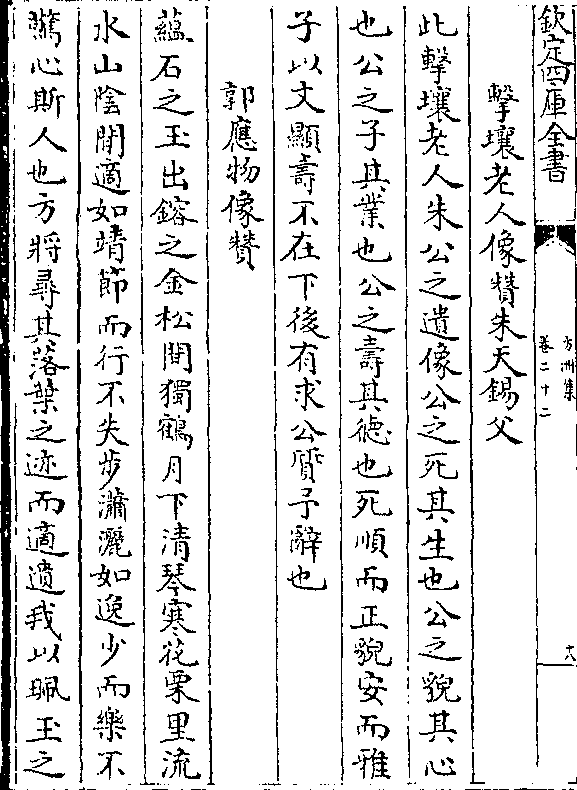 欽定四庫全書
方洲集
卷二十二
十八
擊壤老人像贊朱天錫父
此擊壤老人朱公之遺像公之死其生也公之貌其心
也公之子其業也公之壽其德也死順而正貌安而雅
子以文顯壽不在下後有求公質予辭也
郭應物像贊
蘊石之玉出鎔之金松間獨鶴月下清琴寒花栗里流
水山陰閒適如靖節而行不失步瀟灑如逸少而樂不
驚心斯人也方將尋其落葉之迹而適遺我以珮玉之